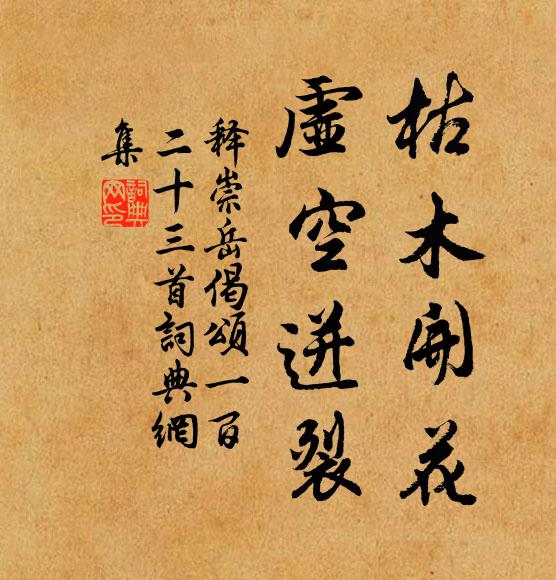 枯木開花
虛空迸裂
釋崇岳偈頌一百
二十三首詞典網
集
詞典
网印